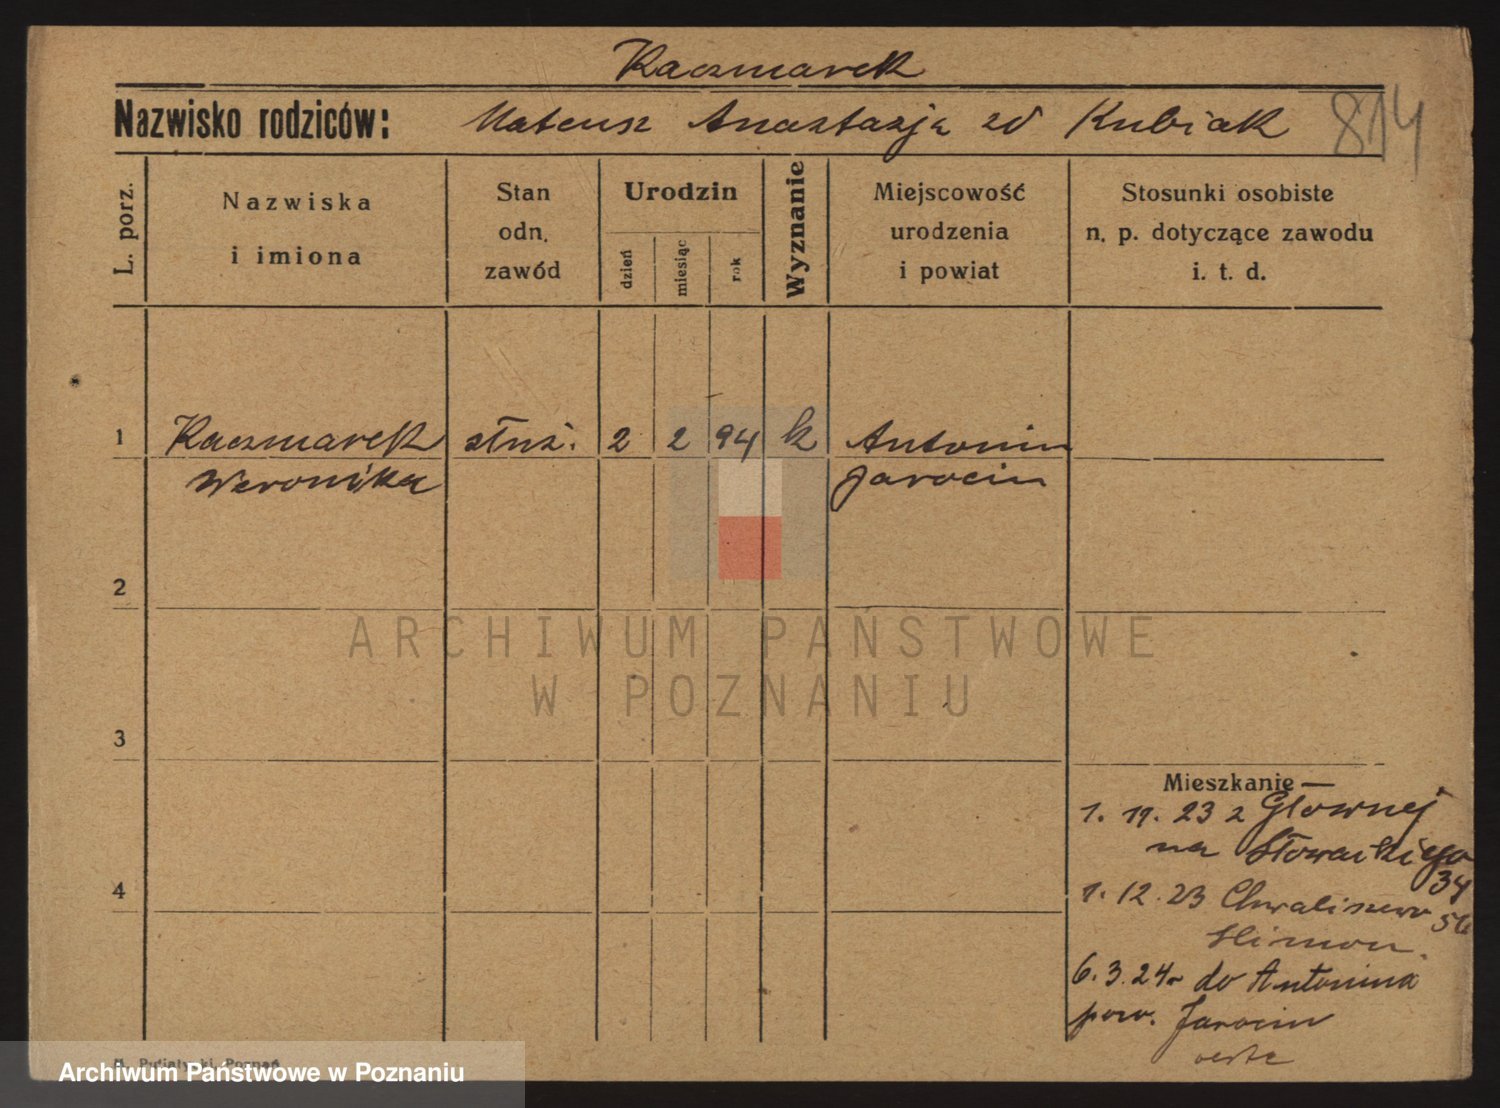 Kaczmarek
Nazwisko rodziców: Mateusz Anastazja zd Kubiak 814
L. porz.
Nazwiska
i imiona
Stan
odn.
zawód
Urodzin
dzień
miesiąc
rok
Wyznanie
Miejscowość
urodzenia
i powiat
Stosunki osobiste
n. p. dotyczące zawodu
i. t. d.
1 Kaczmarek służ. 2 2 94 k Antonin
Weronika Jarocin
2
ARCHIWUM PAŃSTWOWE
W POZNANIU
3
Mieszkanie —
1. 11. 23 z Głownej
na Słowackiego
34
4
1. 12. 23 Chwaliszewo
56
6. 3. 24 do Antonina
pow. Jarocin
Poznań
Archiwum Państwowe w Poznaniu